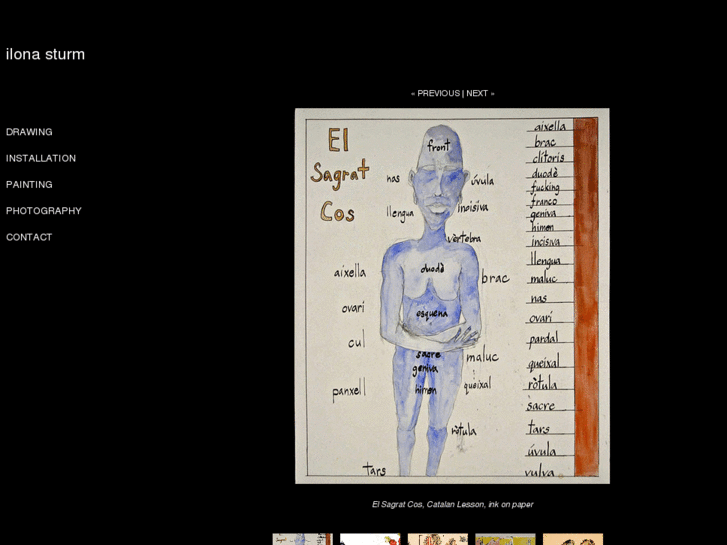 ilona sturm
« PREVIOUS | NEXT »
DRAWING
INSTALLATION
PAINTING
PHOTOGRAPHY
CONTACT
El
Sagrat
Cos
front
nas
úvula
llengua
incisiva
vèrtebra
aixella
duodè
brac
ovari
esquena
cul
sacre
maluc
geniva
panxell
himen
queixal
ròtula
tars
aixella
brac
clitoris
duodè
fucking
franco
geniva
himen
incisiva
llengua
maluc
nas
ovari
pardal
queixal
ròtula
sacre
tars
úvula
vulva
El Sagrat Cos, Catalan Lesson, ink on paper